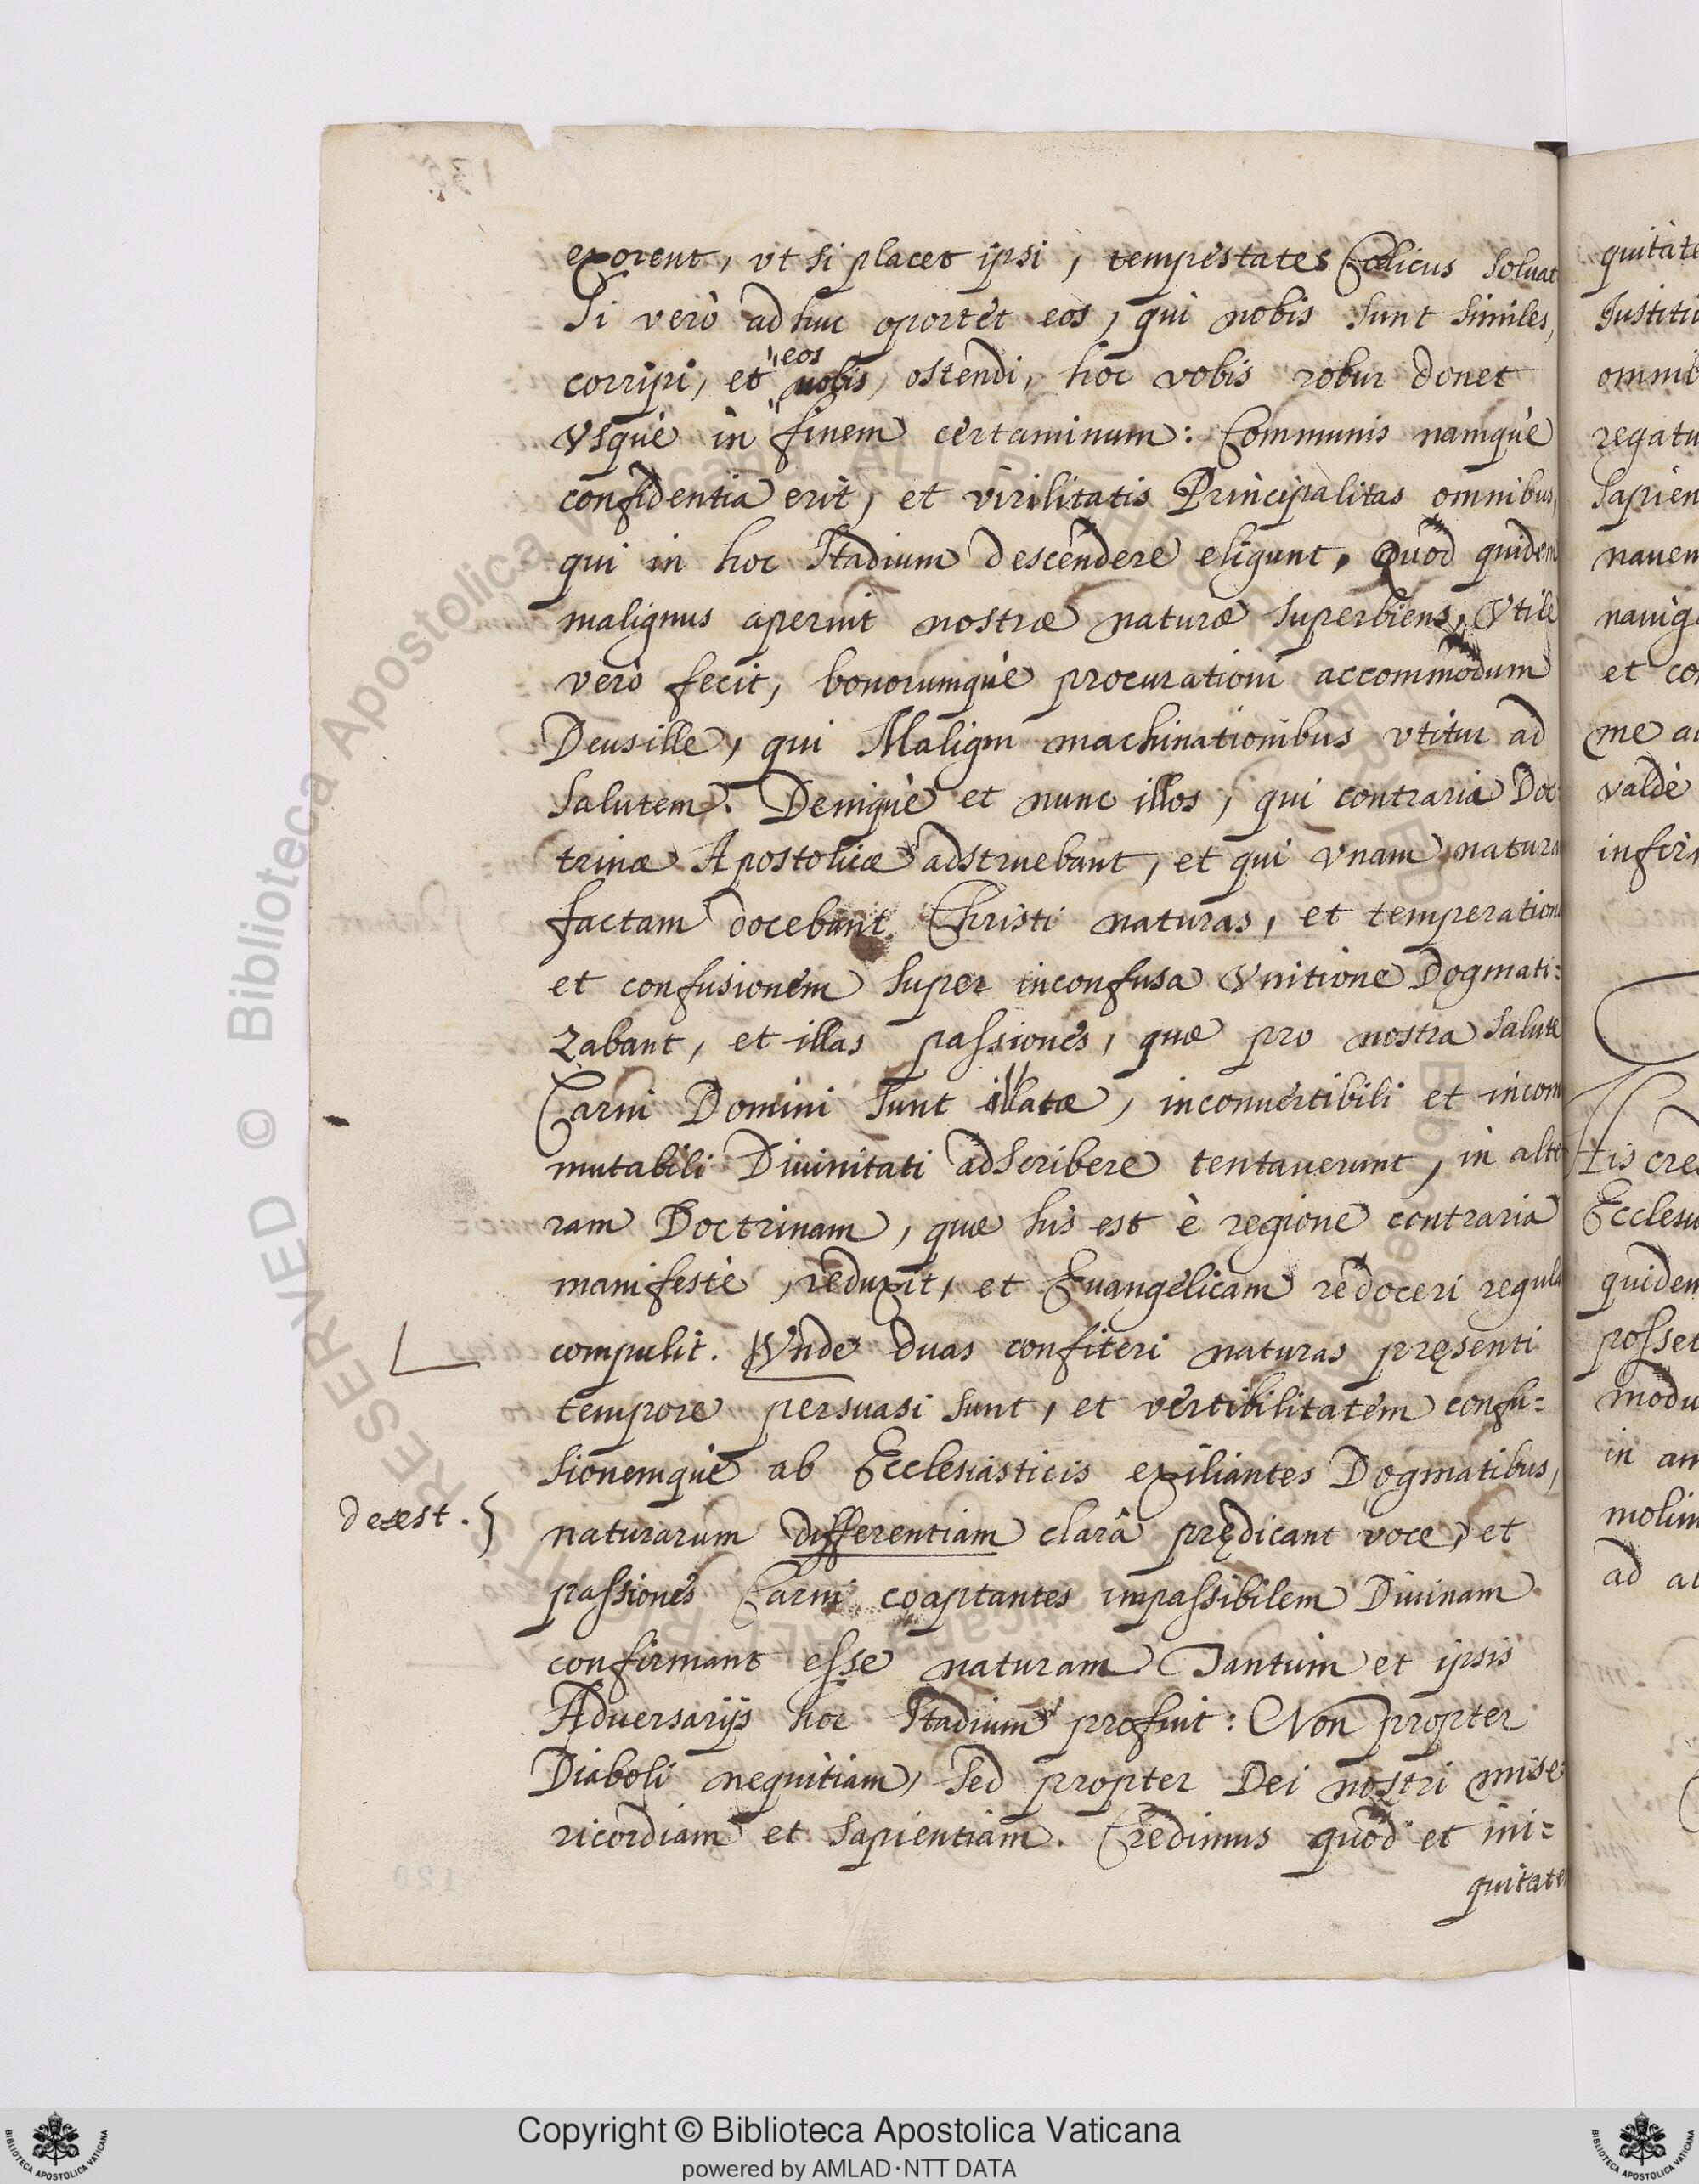 exorent, vt si placet ipsi, tempestates Cœlicus soluat
Si verò adhuc oportet eos, qui nobis sunt similes,
eos
corripi, et nobis, ostendi, hoc vobis robur donet
vsquè in finem certaminum: Communis namquè
confidentia erit, et virilitatis Principalitas omnibus,
qui in hoc Stadium descendere eligunt, Quod quidem
malignus aperuit nostræ naturæ superbiens, vtile
verò fecit, bonorumquè procurationi accommodum
Deus ille, qui Maligni machinationibus vtitur ad
salutem. Deniquè et nunc illos, qui contraria Doc
trinæ Apostolicæ adstruebant, et qui vnam natura
factam docebant Christi naturas, et temperation
et confusionem super inconfusa vnitione Dogmati=
zabant, et illas passiones, quæ pro nostra salute
Carni Domini sunt illatæ, inconuertibili et incom
mutabili Diuinitati adscribere tentauerunt, in alte
ram Doctrinam, quæ his est è regione contraria
manifestè, reduxit, et Euangelicam redoceri regula
compulit. Vnde duas confiteri naturas pręsenti
tempore persuasi sunt, et vertibilitatem confu=
sionemquè ab Ecclesiasticis exiliantes Dogmatibus,
deest. }
naturarum differentiam clarâ prędicant voce, et
passiones Carni coaptantes impassibilem Diuinam
confirmant esse naturam. Tantùm et ipsis
Aduersarijs hoc Stadium profuit: Non propter
Diaboli nequitiam, sed propter Dei nostri mise=
ricordiam et sapientiam. Credimus quod et ini=
quitate
quitate
Justitu
omnib
regatu
sapien
nauem
nauig
et co
me a
valdè
infir
tis cre
Ecclesi
quidem
posset
modu
in an
molim
ad a
© Biblioteca Apostolica Vaticana ALL RIGHTS RESERVED
Copyright © Biblioteca Apostolica Vaticana
powered by AMLAD·NTT DATA
BIBLIOTECA APOSTOLICA VATICANA
BIBLIOTECA APOSTOLICA VATICANA